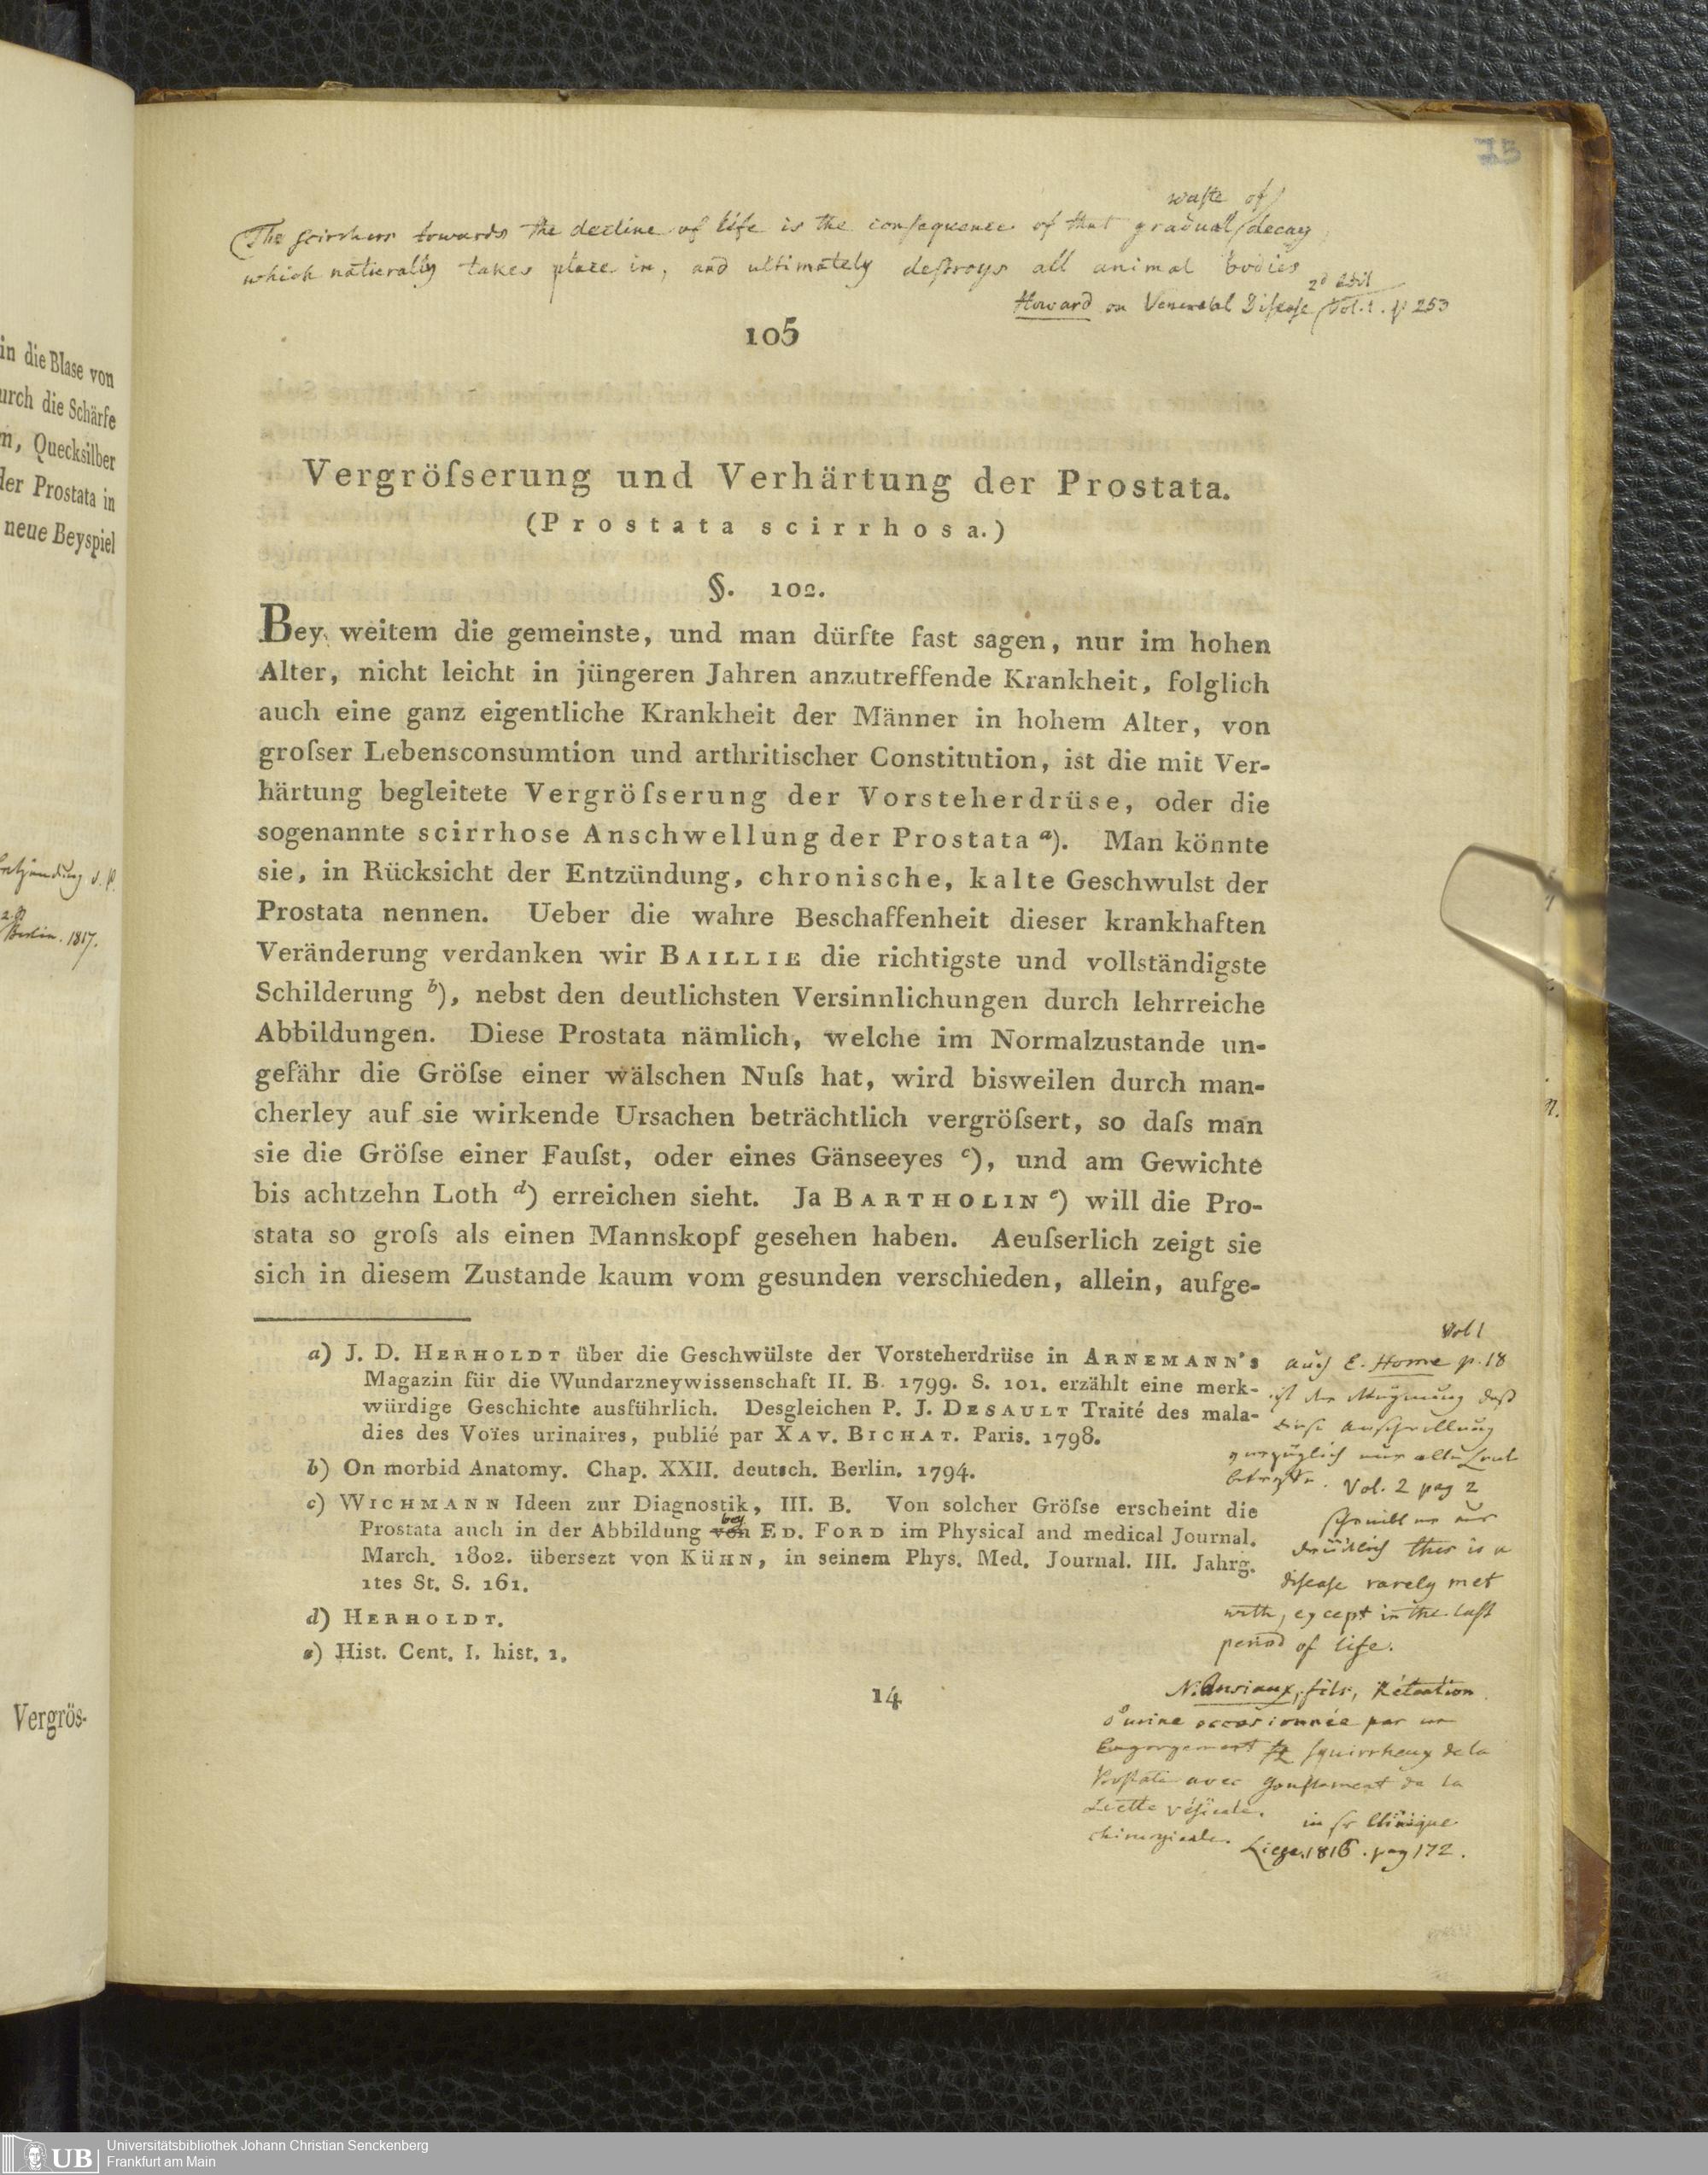 in die Blase von
urch die Schärfe
n, Quecksilber
der Prostata in
neue Beyspiel
Entzündung d. P.
Berlin. 1817.
Vergrös-
75
waste of
The scirrhus towards the decline of life is the consequence of that gradual decay
which naturally takes place in, and ultimately destroys all animal bodies
2d Edit
Howard on Venereal Disease Vol. 1. p 253
105
Vergröſserung und Verhärtung der Prostata.
(Prostata scirrhosa.)
§. 102.
Bey weitem die gemeinste, und man dürfte fast sagen, nur im hohen
Alter, nicht leicht in jüngeren Jahren anzutreffende Krankheit, folglich
auch eine ganz eigentliche Krankheit der Männer in hohem Alter, von
groſser Lebensconsumtion und arthritischer Constitution, ist die mit Ver-
härtung begleitete Vergröſserung der Vorsteherdrüse, oder die
sogenannte scirrhose Anschwellung der Prostata a). Man könnte
sie, in Rücksicht der Entzündung, chronische, kalte Geschwulst der
Prostata nennen. Ueber die wahre Beschaffenheit dieser krankhaften
Veränderung verdanken wir BAILLIE die richtigste und vollständigste
Schilderung b), nebst den deutlichsten Versinnlichungen durch lehrreiche
Abbildungen. Diese Prostata nämlich, welche im Normalzustande un-
gefähr die Gröſse einer wälschen Nuſs hat, wird bisweilen durch man-
cherley auf sie wirkende Ursachen beträchtlich vergröſsert, so daſs man
sie die Gröſse einer Fauſst, oder eines Gänseeyes c), und am Gewichte
bis achtzehn Loth d) erreichen sieht. Ja BARTHOLIN e) will die Pro-
stata so groſs als einen Mannskopf gesehen haben. Aeuſserlich zeigt sie
sich in diesem Zustande kaum vom gesunden verschieden, allein, aufge-
a) J. D. HERHOLDT über die Geschwülste der Vorsteherdrüse in ARNEMANN's
Magazin für die Wundarzneywissenschaft II. B. 1799. S. 101. erzählt eine merk-
würdige Geschichte ausführlich. Desgleichen P. J. DESAULT Traité des mala-
dies des Voïes urinaires, publié par XAV. BICHAT. Paris. 1798.
b) On morbid Anatomy. Chap. XXII. deutsch. Berlin. 1794.
c) WICHMANN Ideen zur Diagnostik, III. B. Von solcher Gröſse erscheint die
bey
Prostata auch in der Abbildung von ED. FORD im Physical and medical Journal.
March. 1802. übersezt von KÜHN, in seinem Phys. Med. Journal. III. Jahrg.
1tes St. S. 161.
d) HERHOLDT.
e) Hist. Cent. I. hist. 1.
14
Vol 1
auch E. Home p. 18
ist der Meynung daß
diese Anschwellung
vorzüglich nur alte Leute
betreffe. Vol. 2 pag 2
schreibt er aus
drücklich this is a
disease rarely met
with, except in the last
period of life.
N. Ansiaux, fils, Rétention
d'urine occasionnée par un
Engorgement squirrheux de la
Prostate avec gonflement de la
Luette vésicale. in sr Clinique
chirurgicale. Liege. 1816. pag 172.
UB
Universitätsbibliothek Johann Christian Senckenberg
Frankfurt am Main